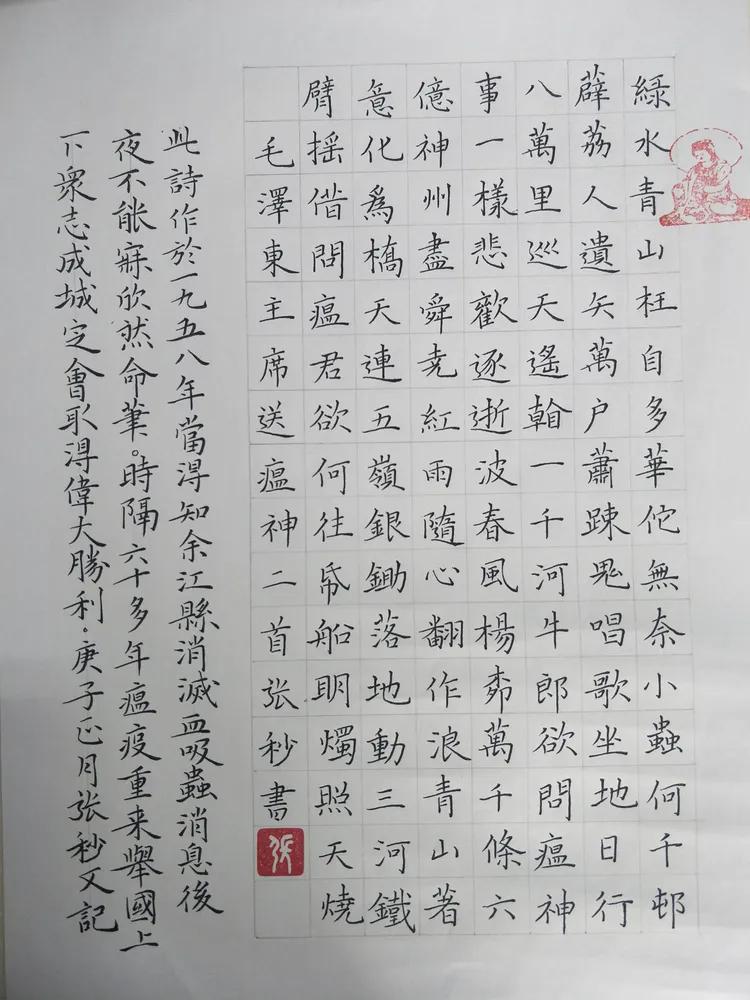 綠水青山枉自多華佗無奈小蟲何千邨
薜荔人遺矢萬戶蕭踈鬼唱歌坐地日行
八萬里巡天遙翰一千河牛郎欲問瘟神
事一樣悲歡逐逝波春風楊柳萬千條六
億神州盡舜尭紅雨隨心翻作浪青山著
意化爲橋天連五嶺銀鋤落地動三河鐵
臂摇借問瘟君欲何往帋船明燭照天燒
毛澤東主席送瘟神二首张秒書
张
此詩作於一九五八年當得知余江縣消滅血吸蟲消息後
夜不能寐欣然命筆。時隔六十多年瘟疫重来舉國上
下衆志成城定會取得偉大勝利.庚子正月张秒又記